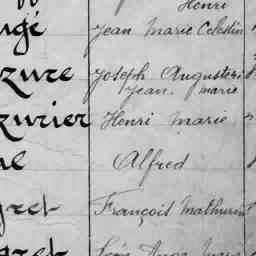 Henri
ugé Jean Marie Celestin
zure Joseph Augustin
Jean. marie
zurier Henri Marie
Alfred
gret François Mathurin